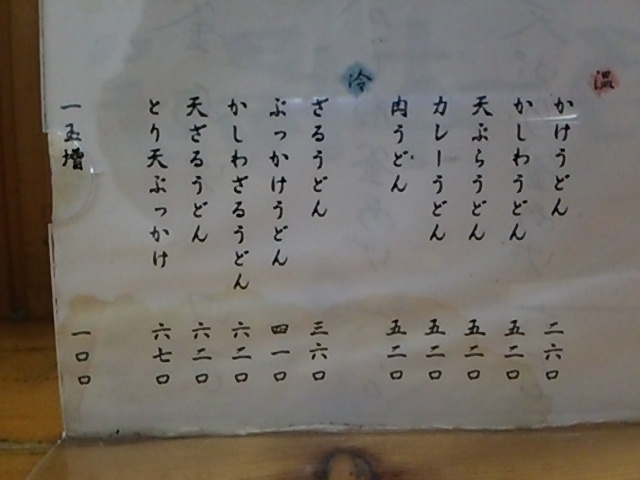 温
かけうどん 二六〇
かしわうどん 五二〇
天ぷらうどん 五二〇
カレーうどん 五二〇
肉うどん 五二〇
冷
ざるうどん 三六〇
ぶっかけうどん 四一〇
かしわざるうどん 六二〇
天ざるうどん 六二〇
とり天ぶっかけ 六七〇
一玉増 一〇〇